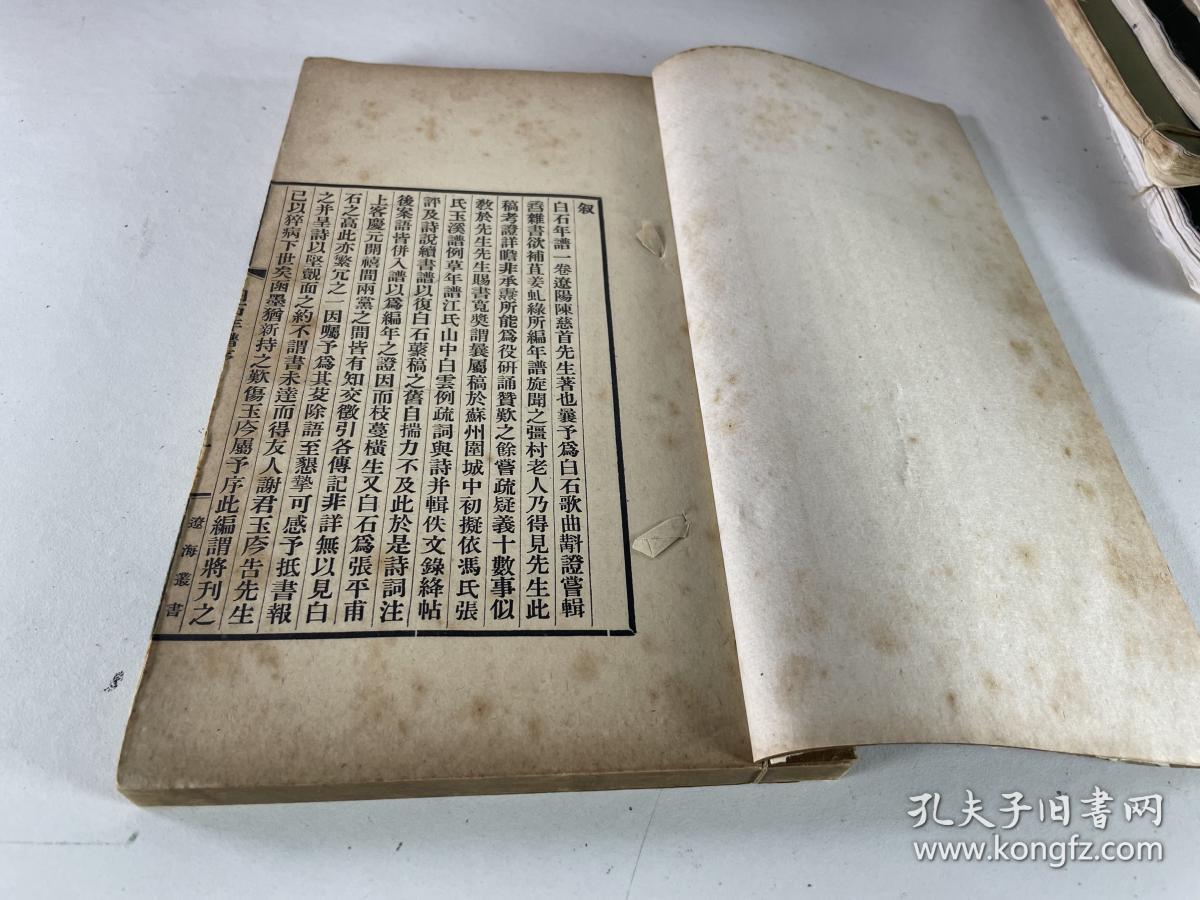 叙
白石年譜一卷遼陽陳慈首先生著也曩予爲白石歌曲斠證嘗輯
舊雜書欲補苴姜虬綠所編年譜旋聞之彊村老人乃得見先生此
稿考證詳贍非承燾所能爲役研誦贊歎之餘嘗疏疑義十數事似
教於先生先生賜書寬奬謂曩屬稿於蘇州圍城中初擬依馮氏張
氏玉溪譜例草年譜江氏山中白雲例疏詞與詩并輯佚文錄絳帖
評及詩說續書譜以復白石叢稿之舊自揣力不及此於是詩詞注
後案語皆併入譜以爲編年之證因而枝蔓橫生又白石爲張平甫
上客慶元開禧間兩黨之間皆有知交徵引各傳記非詳無以見白
石之高此亦繁冗之一因囑予爲其芟除語至懇摯可感予抵書報
之并呈詩以堅覿面之約不謂書未達而得友人謝君玉岑告先生
已以猝病下世矣函墨猶新持之歎傷玉岑屬予序此編謂將刋之
遼海叢書
孔夫子旧书网
www.kongfz.com